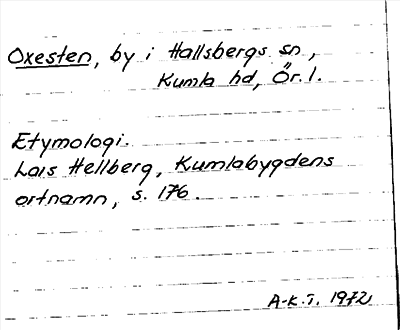 Oxesten, by i Hallsbergs sn,
Kumla hd, Ör. l.
Etymologi.
Lars Hellberg, Kumlabygdens
ortnamn, s. 176.
A-K.T. 1972